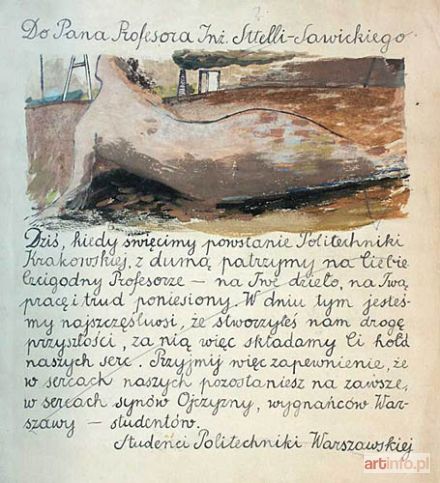 Do Pana Profesora Inż. Stelli-Sawickiego.
Dziś, kiedy święcimy powstanie Politechniki
Krakowskiej, z dumą patrzymy na Ciebie
Czcigodny Profesorze – na Twe dzieło, na Twą
pracę i trud poniesiony. W dniu tym jesteś-
my najszczęśliwsi, że stworzyłeś nam drogę
przyszłości, za nią więc składamy Ci hołd
naszych serc. Przyjmij więc zapewnienie, że
w sercach naszych pozostaniesz na zawsze,
w sercach synów Ojczyzny, wygnańców War-
szawy – studentów.
Studenci Politechniki Warszawskiej
artinfo.pl